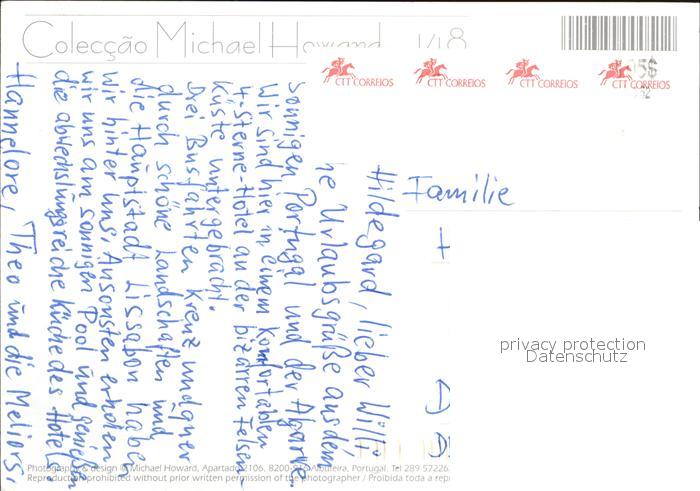 Colecção Michael Howard 1/18
CTT CORREIOS CTT CORREIOS CTT CORREIOS CTT CORREIOS
Hildegard, lieber Willi
ne Urlaubsgrüße aus dem
sonnigen Portugal und der Algarve.
Wir sind hier in einem komfortablen
4-Sterne-Hotel an der bizarren Felsen-
küste untergebracht.
Drei Busfahrten kreuz und quer
durch schöne Landschaften und
die Hauptstadt Lissabon haben
wir hinter uns. Ansonsten erholen
wir uns am sonnigen Pool und genießen
die abwechslungsreiche Küche des Hotels.
Hannelore, Theo und die Meliors.
Familie
privacy protection
Datenschutz
Photography & design © Michael Howard, Apartado 2106, 8200- Albufeira, Portugal. Tel 289 57226
Reproduction prohibited without prior written permission of the photographer / Proibida toda a rep